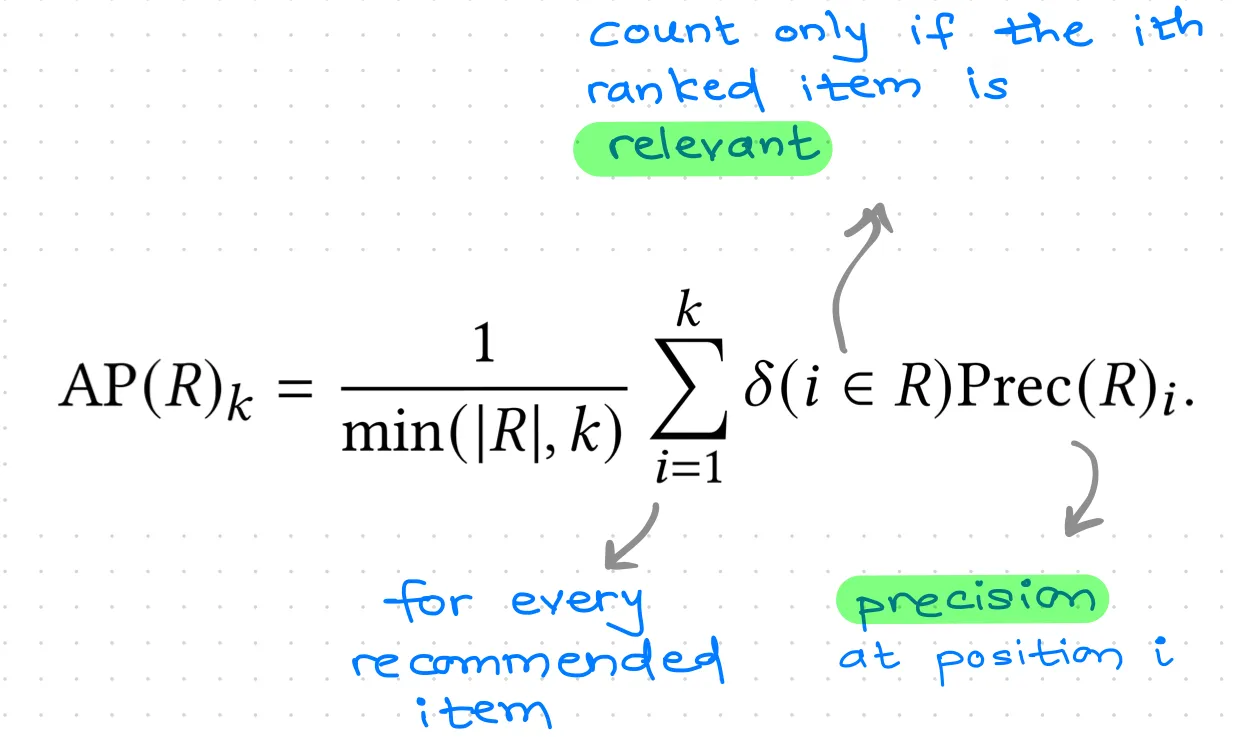 count only if the ith
ranked item is
relevant
AP(R)k = 1/min(|R|, k) ∑ k i=1 δ(i ∈ R)Prec(R)i.
for every
recommended
item
precision
at position i